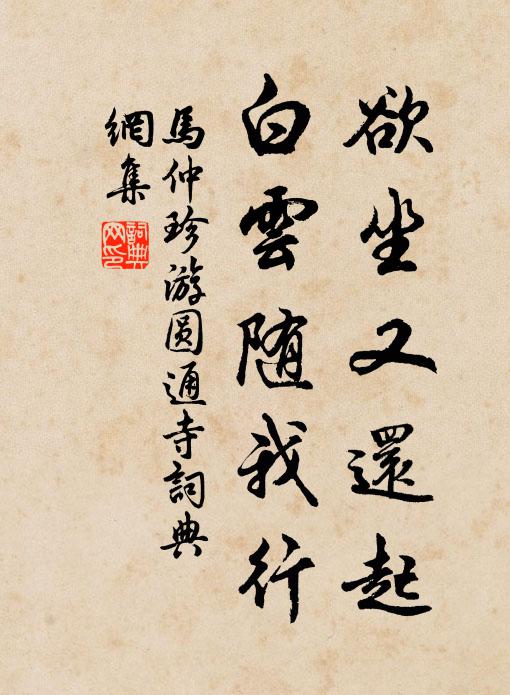 欲坐又還起
白雲随我行
馬仲珍游圆通寺詞典
網集
詞典
网印